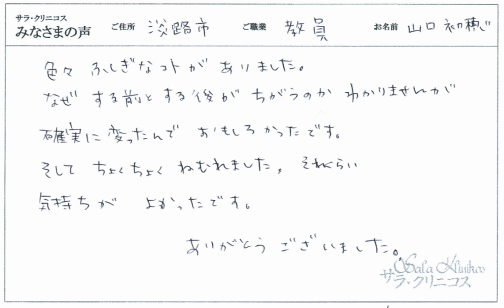 サラ・クリニコス
みなさまの声 ご住所 淡路市 ご職業 教員 お名前 山口 和穂
色々 ふしぎなコトが ありました。
なぜ する前と する後が ちがうのか わかりませんが
確実に 変ったんで おもしろかったです。
そして ちょくちょく ねむれました, それくらい
気持ちが よかったです。
ありがとう ございました。
Sala Klinikos
サラ・クリニコス